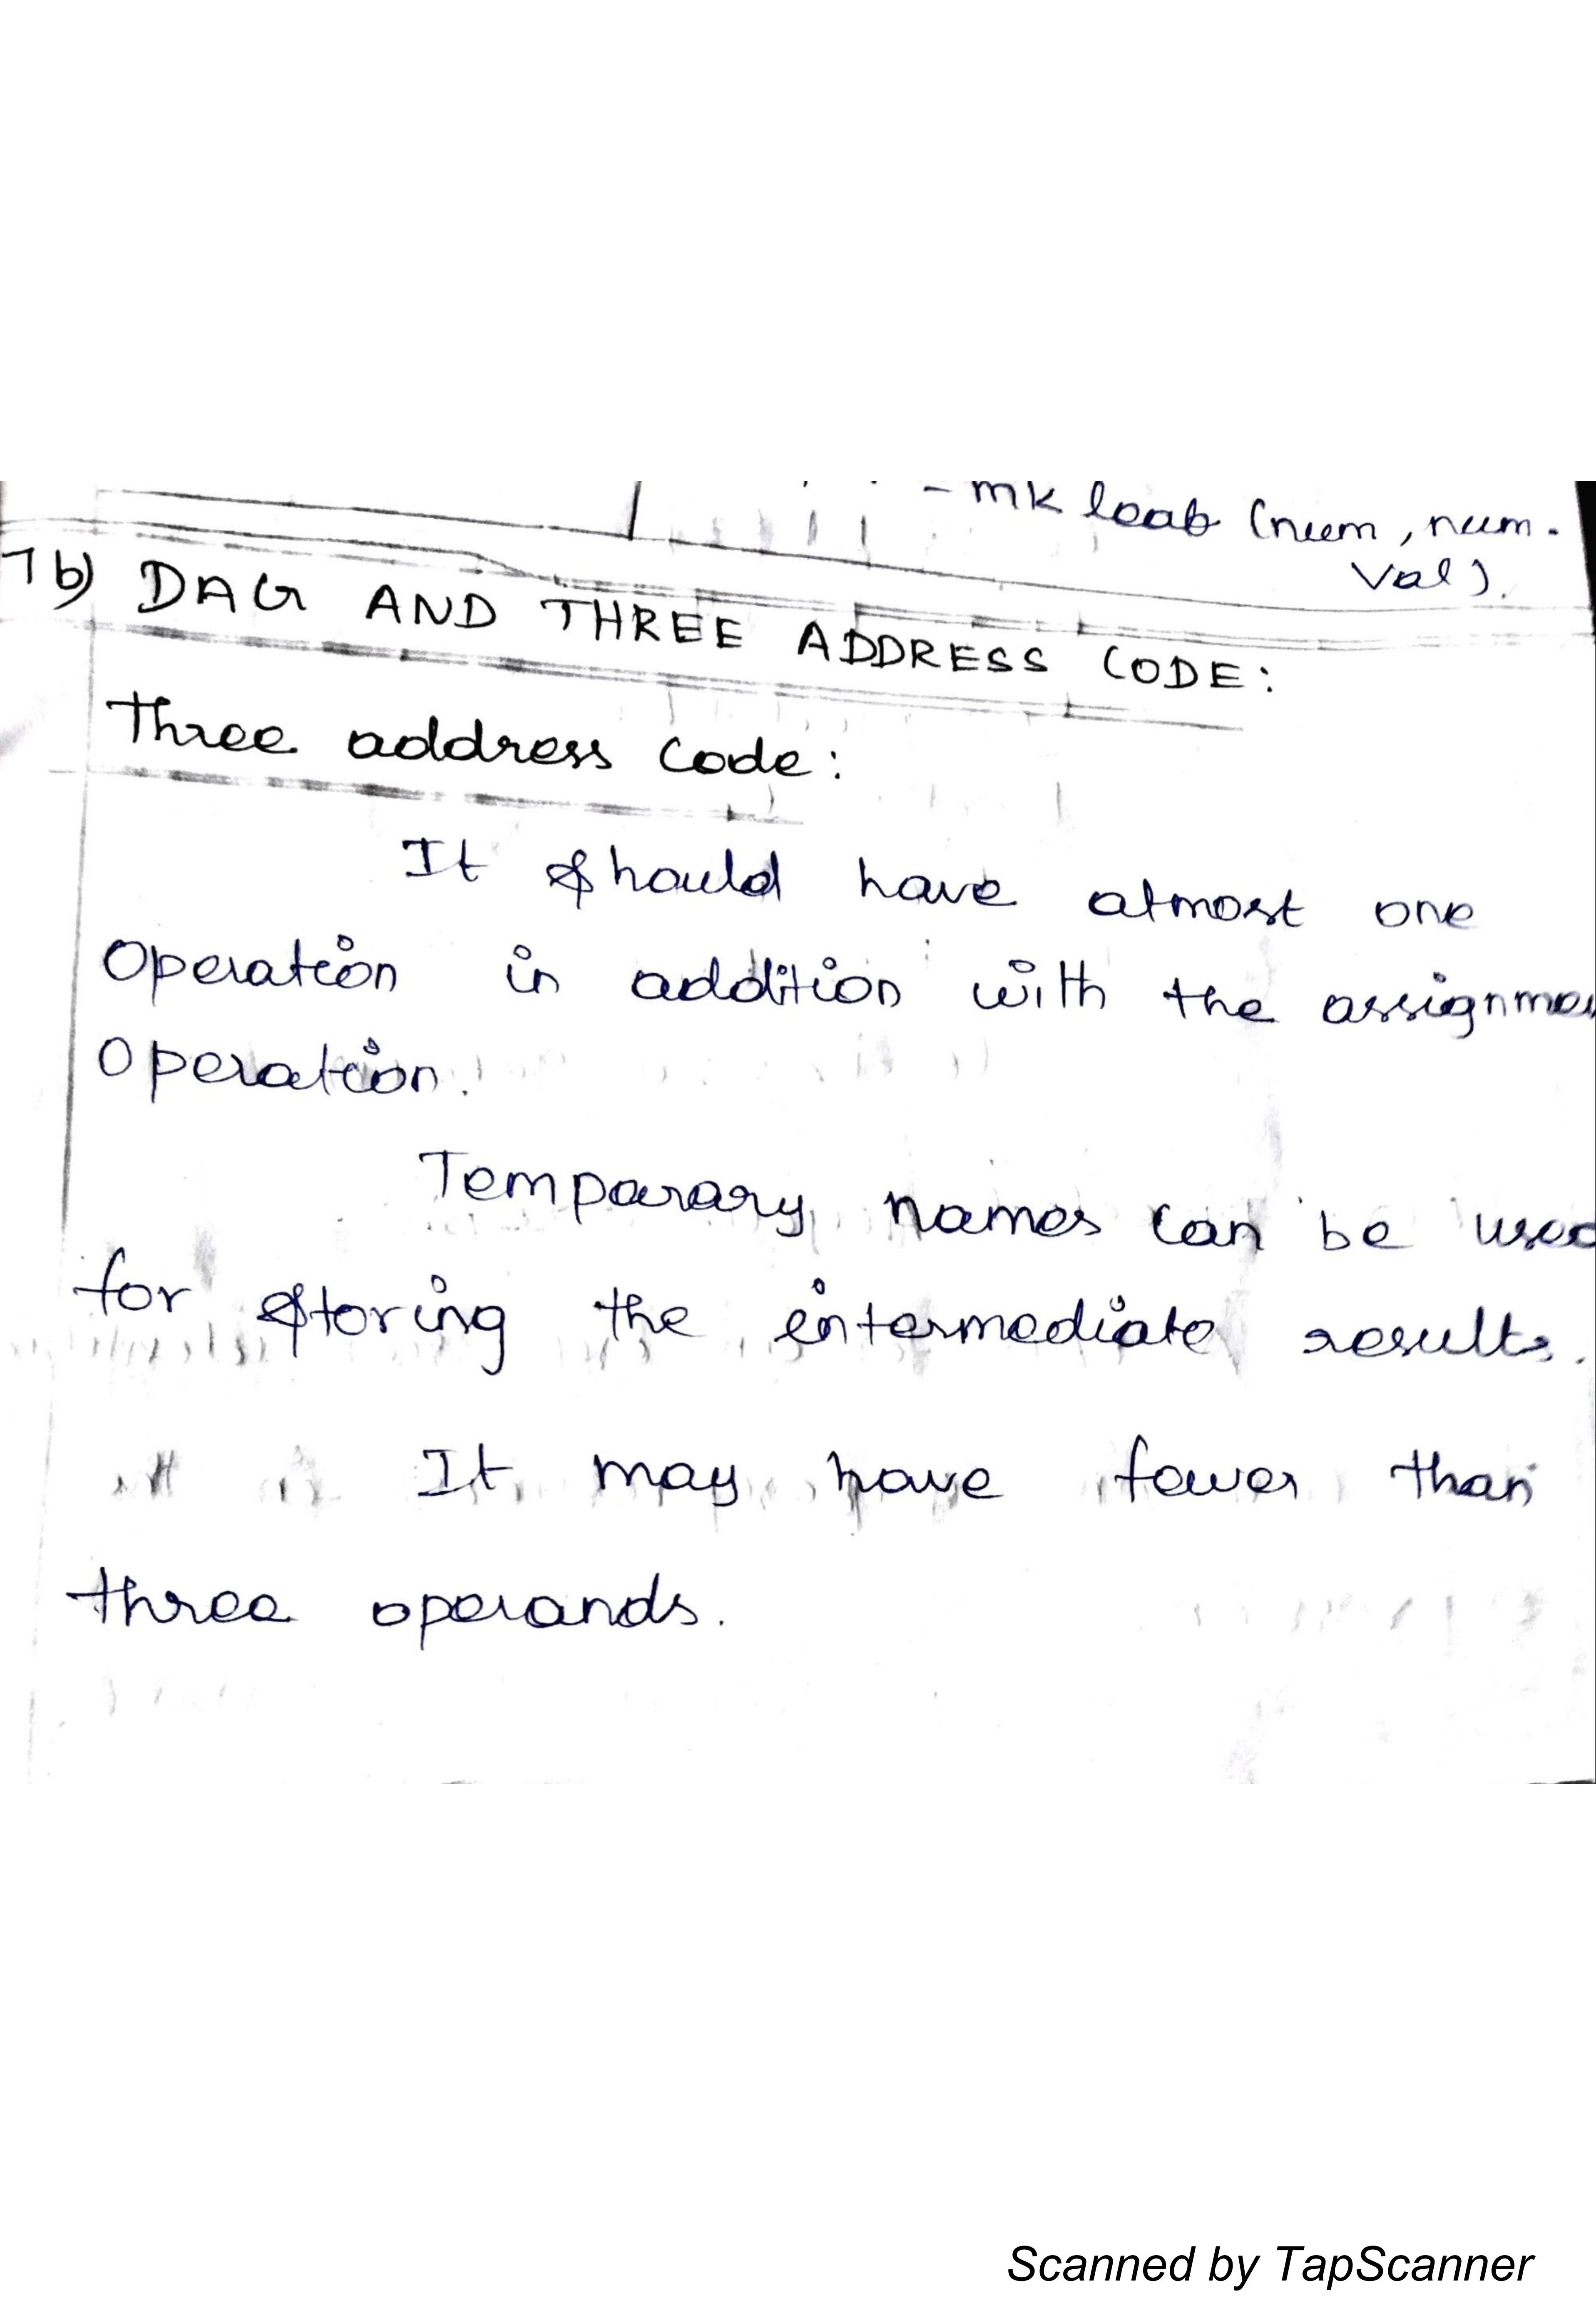 - mk leab (num, num.
val).
7b) DAG AND THREE ADDRESS CODE:
Three address code:
It should have atmost one
Operation in addition with the assignmen
Operation.
Temparary names can be used
for storing the intermediate results.
It may have fewer than
three operands.
Scanned by TapScanner